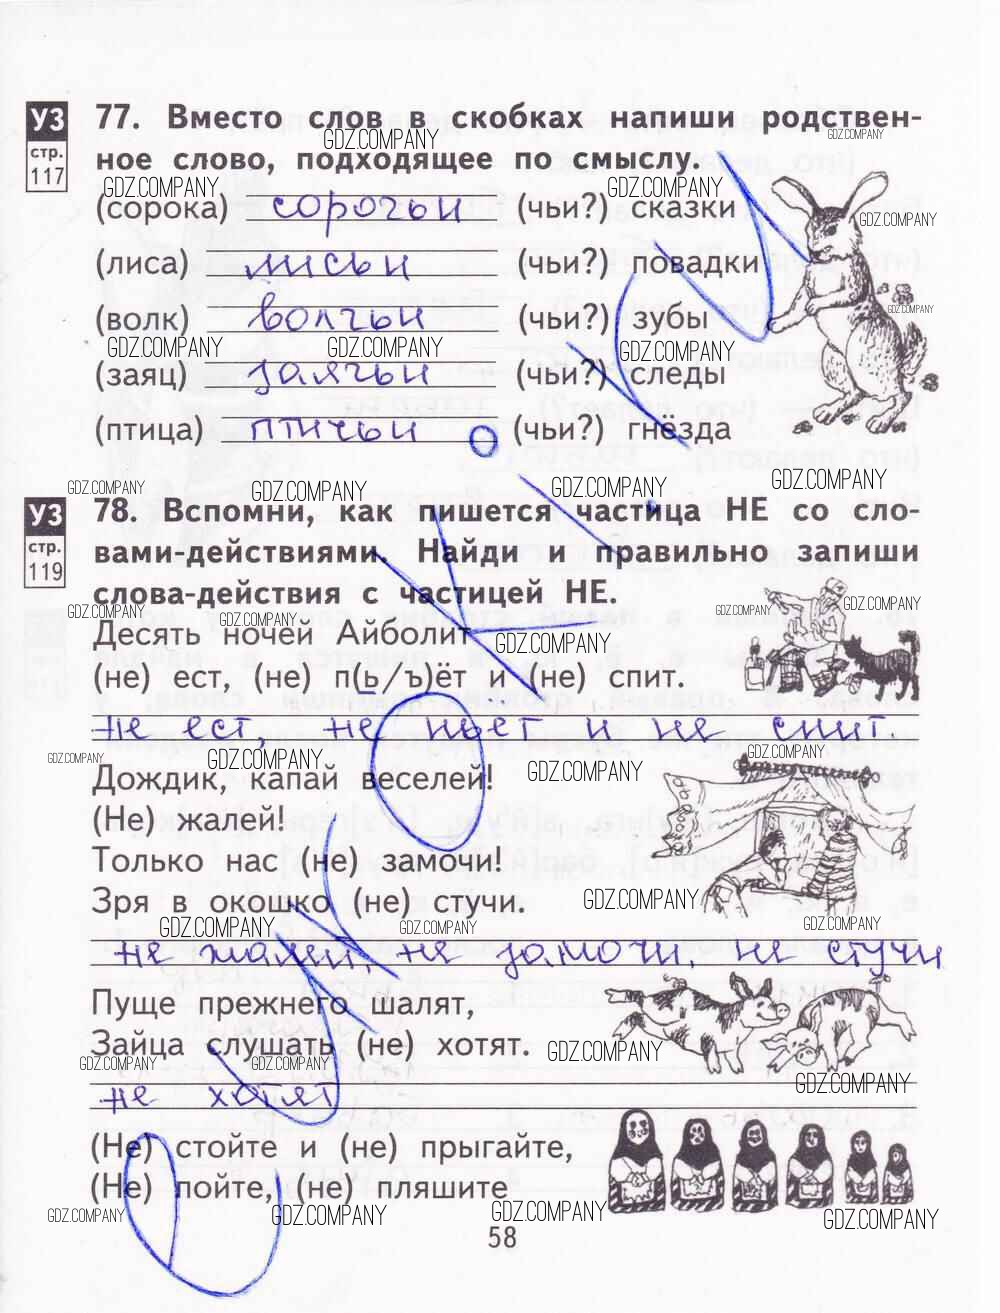 УЗ
стр.
117
77. Вместо слов в скобках напиши родствен-
ное слово, подходящее по смыслу.
(сорока) сорочьи (чьи?) сказки
(лиса) лисьи (чьи?) повадки
(волк) волчьи (чьи?) зубы
(заяц) заячьи (чьи?) следы
(птица) птичьи (чьи?) гнёзда
УЗ
стр.
119
78. Вспомни, как пишется частица НЕ со сло-
вами-действиями. Найди и правильно запиши
слова-действия с частицей НЕ.
Десять ночей Айболит
(не) ест, (не) п(ь/ъ)ёт и (не) спит.
не ест, не пьёт и не спит
Дождик, капай веселей!
(Не) жалей!
Только нас (не) замочи!
Зря в окошко (не) стучи.
не жалей, не замочи, не стучи
Пуще прежнего шалят,
Зайца слушать (не) хотят.
не хотят
(Не) стойте и (не) прыгайте,
(Не) пойте, (не) пляшите
58
GDZ.COMPANY